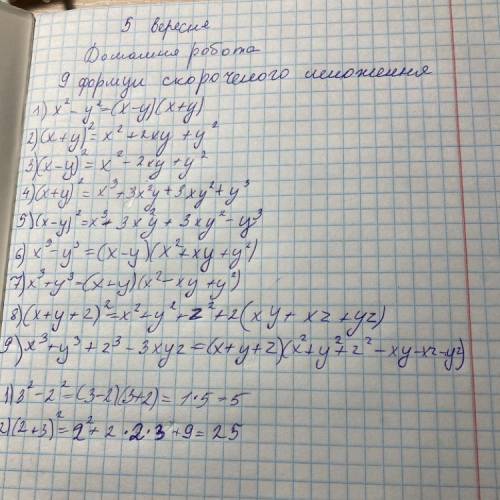 5 вересня
Домашня робота
9 формул скороченого множення
1) x² - y² = (x-y)(x+y)
2) (x+y)² = x² + 2xy + y²
3) (x-y)² = x² - 2xy + y²
4) (x+y)² = x³ + 3x²y + 3xy² + y³
5) (x-y)² = x³ + 3x²y + 3xy² - y³
6) x³ - y³ = (x-y)(x² + xy + y²)
7) x³ + y³ = (x+y)(x² - xy + y²)
8) (x+y+z)² = x² + y² + z² + 2(xy + xz + yz)
9) x³ + y³ + z³ - 3xyz = (x+y+z)(x² + y² + z² - xy - xz - yz)
1) 3² - 2² = (3-2)(3+2) = 1·5 = 5
2) (2+3)² = 2² + 2·2·3 + 9 = 25